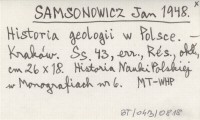 SAMSONOWICZ Jan 1948. x
Historia geologii w Polsce. —
Kraków. Ss. 43, err., Rés., okł.,
cm 26 x 18. Historia Nauki Polskiej
w Monografiach nr 6. MT-WHP
BT/043/0818